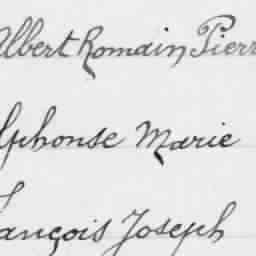 Albert Romain Pierr
lphonse Marie
ançois Joseph